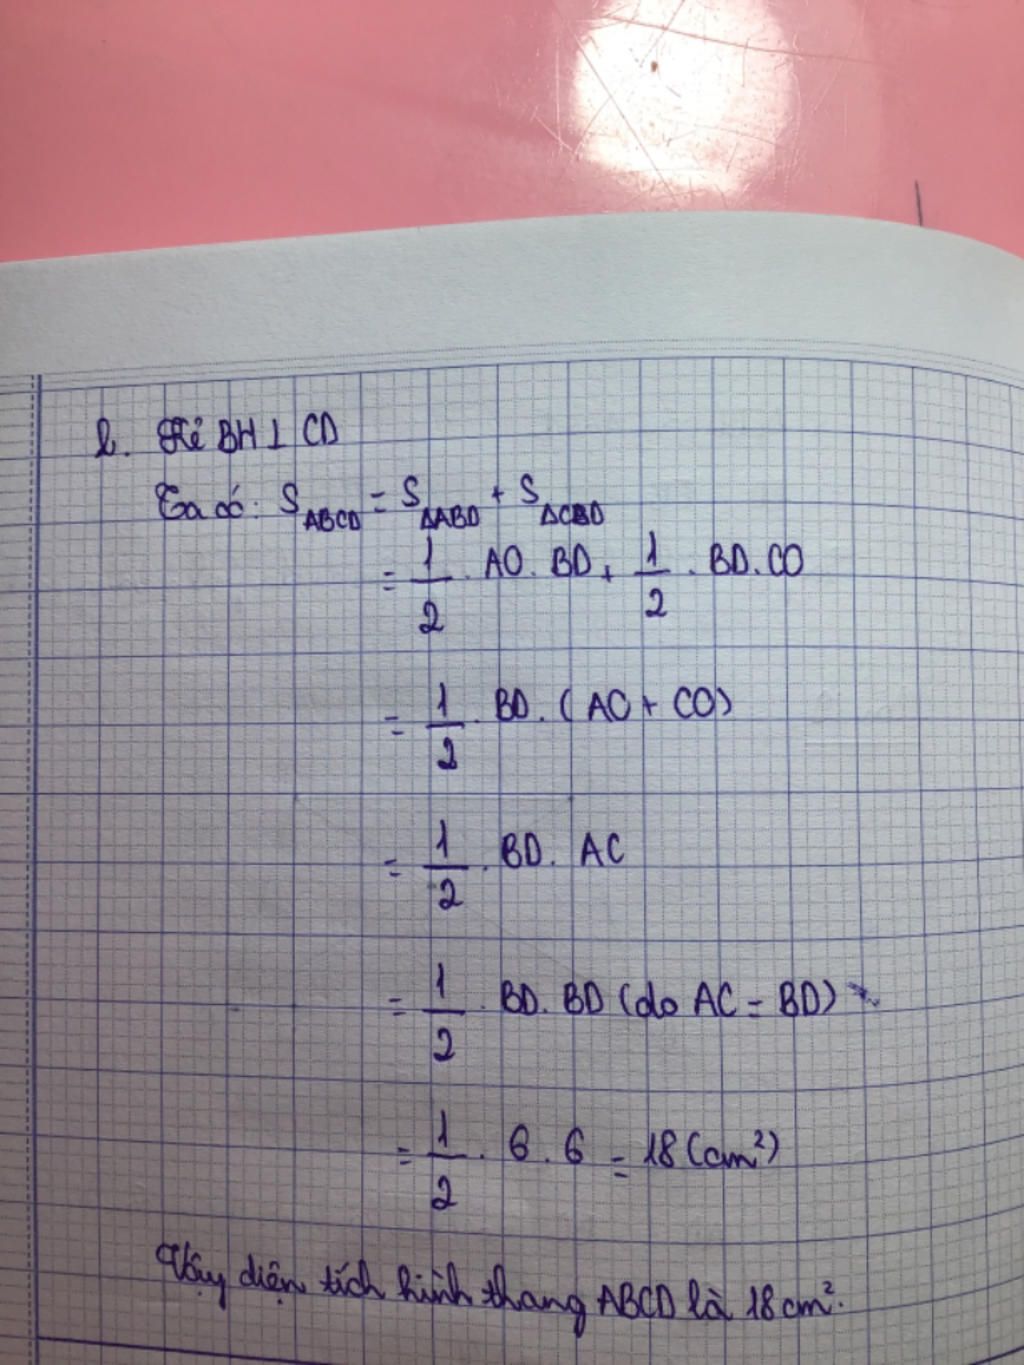 b. Kẻ BH ⊥ CD
Ta có: S_ABCD = S_ΔABD + S_ΔCBD
= 1/2 . AO . BD + 1/2 . BD . CO
= 1/2 . BD . (AO + CO)
= 1/2 . BD . AC
= 1/2 . BD . BD (do AC = BD)
= 1/2 . 6 . 6 = 18 (cm²)
Vậy diện tích hình thang ABCD là 18 cm².